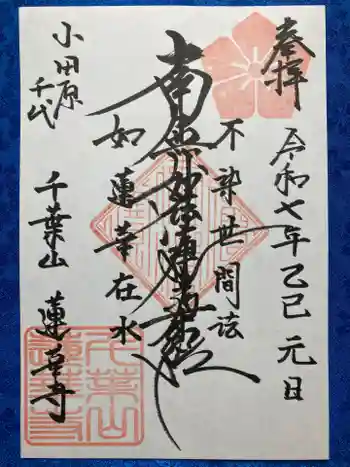 奉拝
令和七年乙巳元日
不染世間法
南無妙法蓮華経
如蓮華在水
小田原
千代
千葉山 蓮華寺